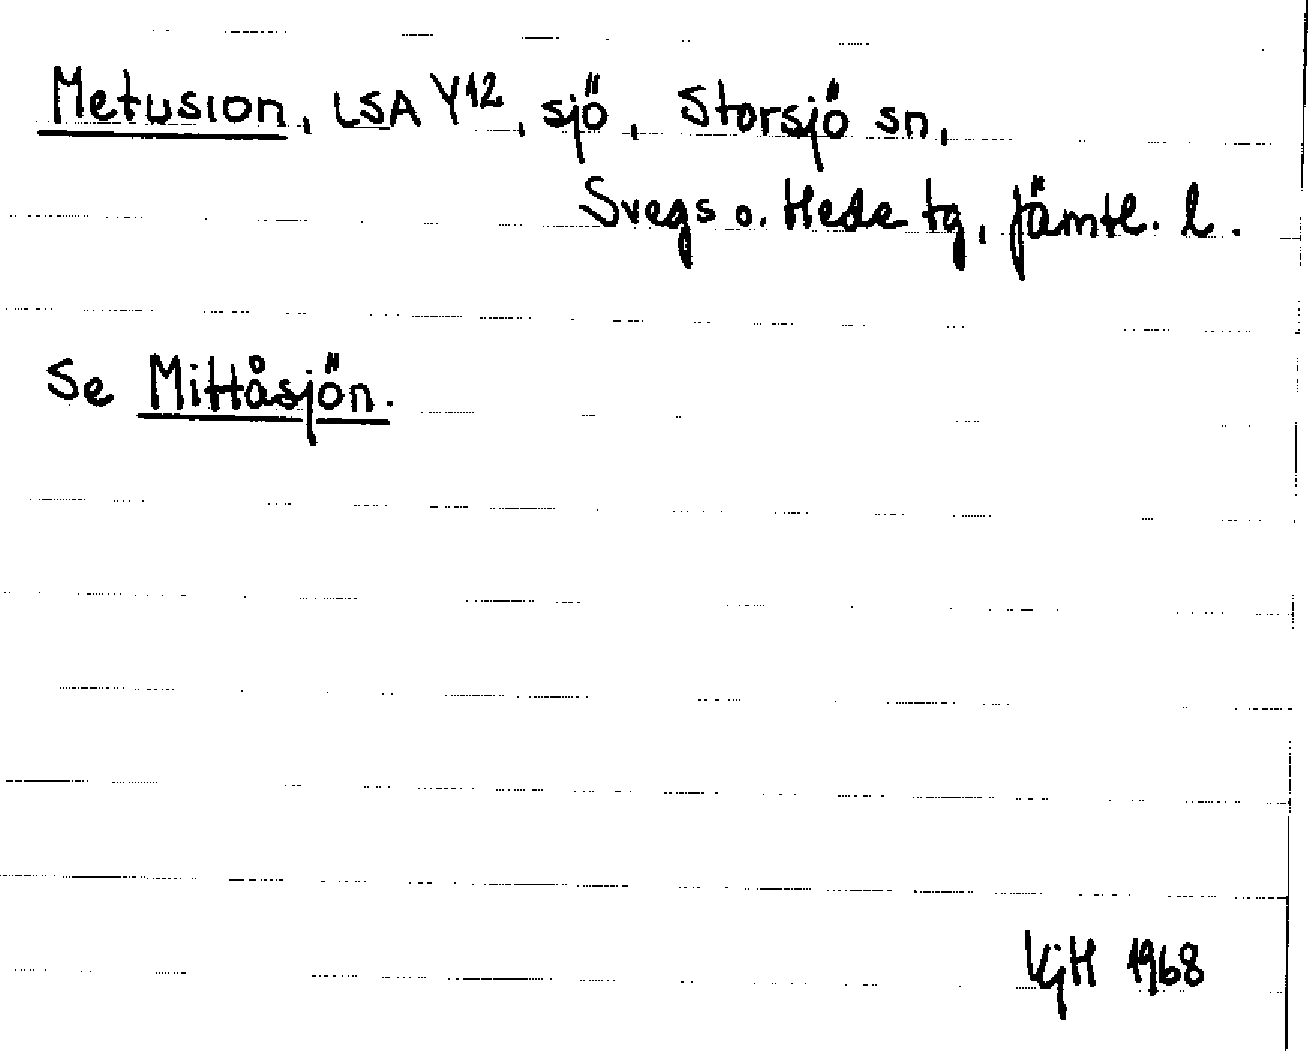 Metusion, LSA Y12, sjö, Storsjö sn,
Svegs o. Hede tg, Jämtl. l.
Se Mittåsjön.
VGH 1968